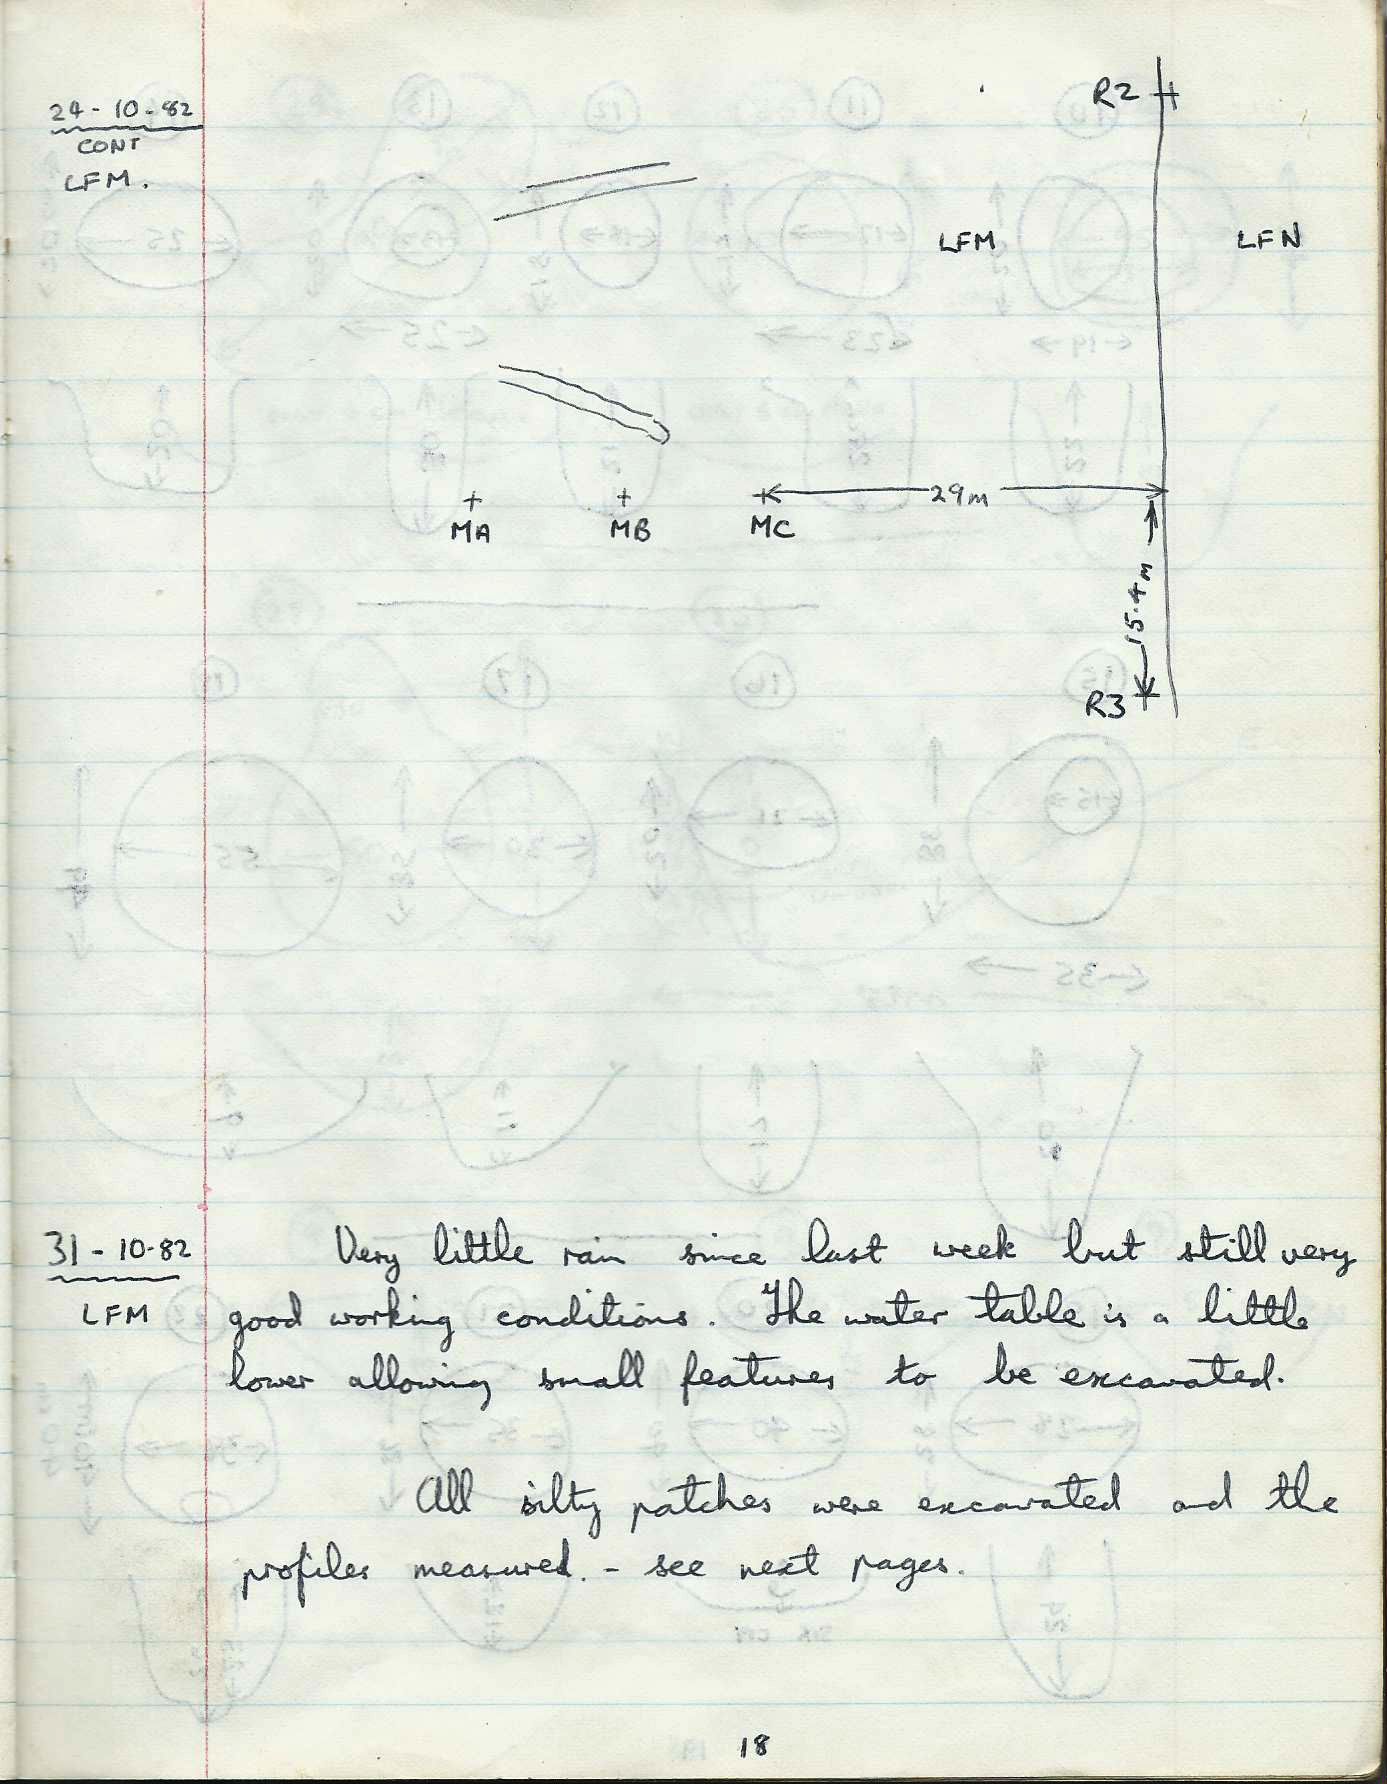 24-10-82
CONT
LFM.
R2
LFM
LFN
29m
MA MB MC
15.4m
R3
31-10-82
LFM
Very little rain since last week but still very
good working conditions. The water table is a little
lower allowing small features to be excavated.
All silty patches were excavated and the
profiles measured. - see next pages.
18